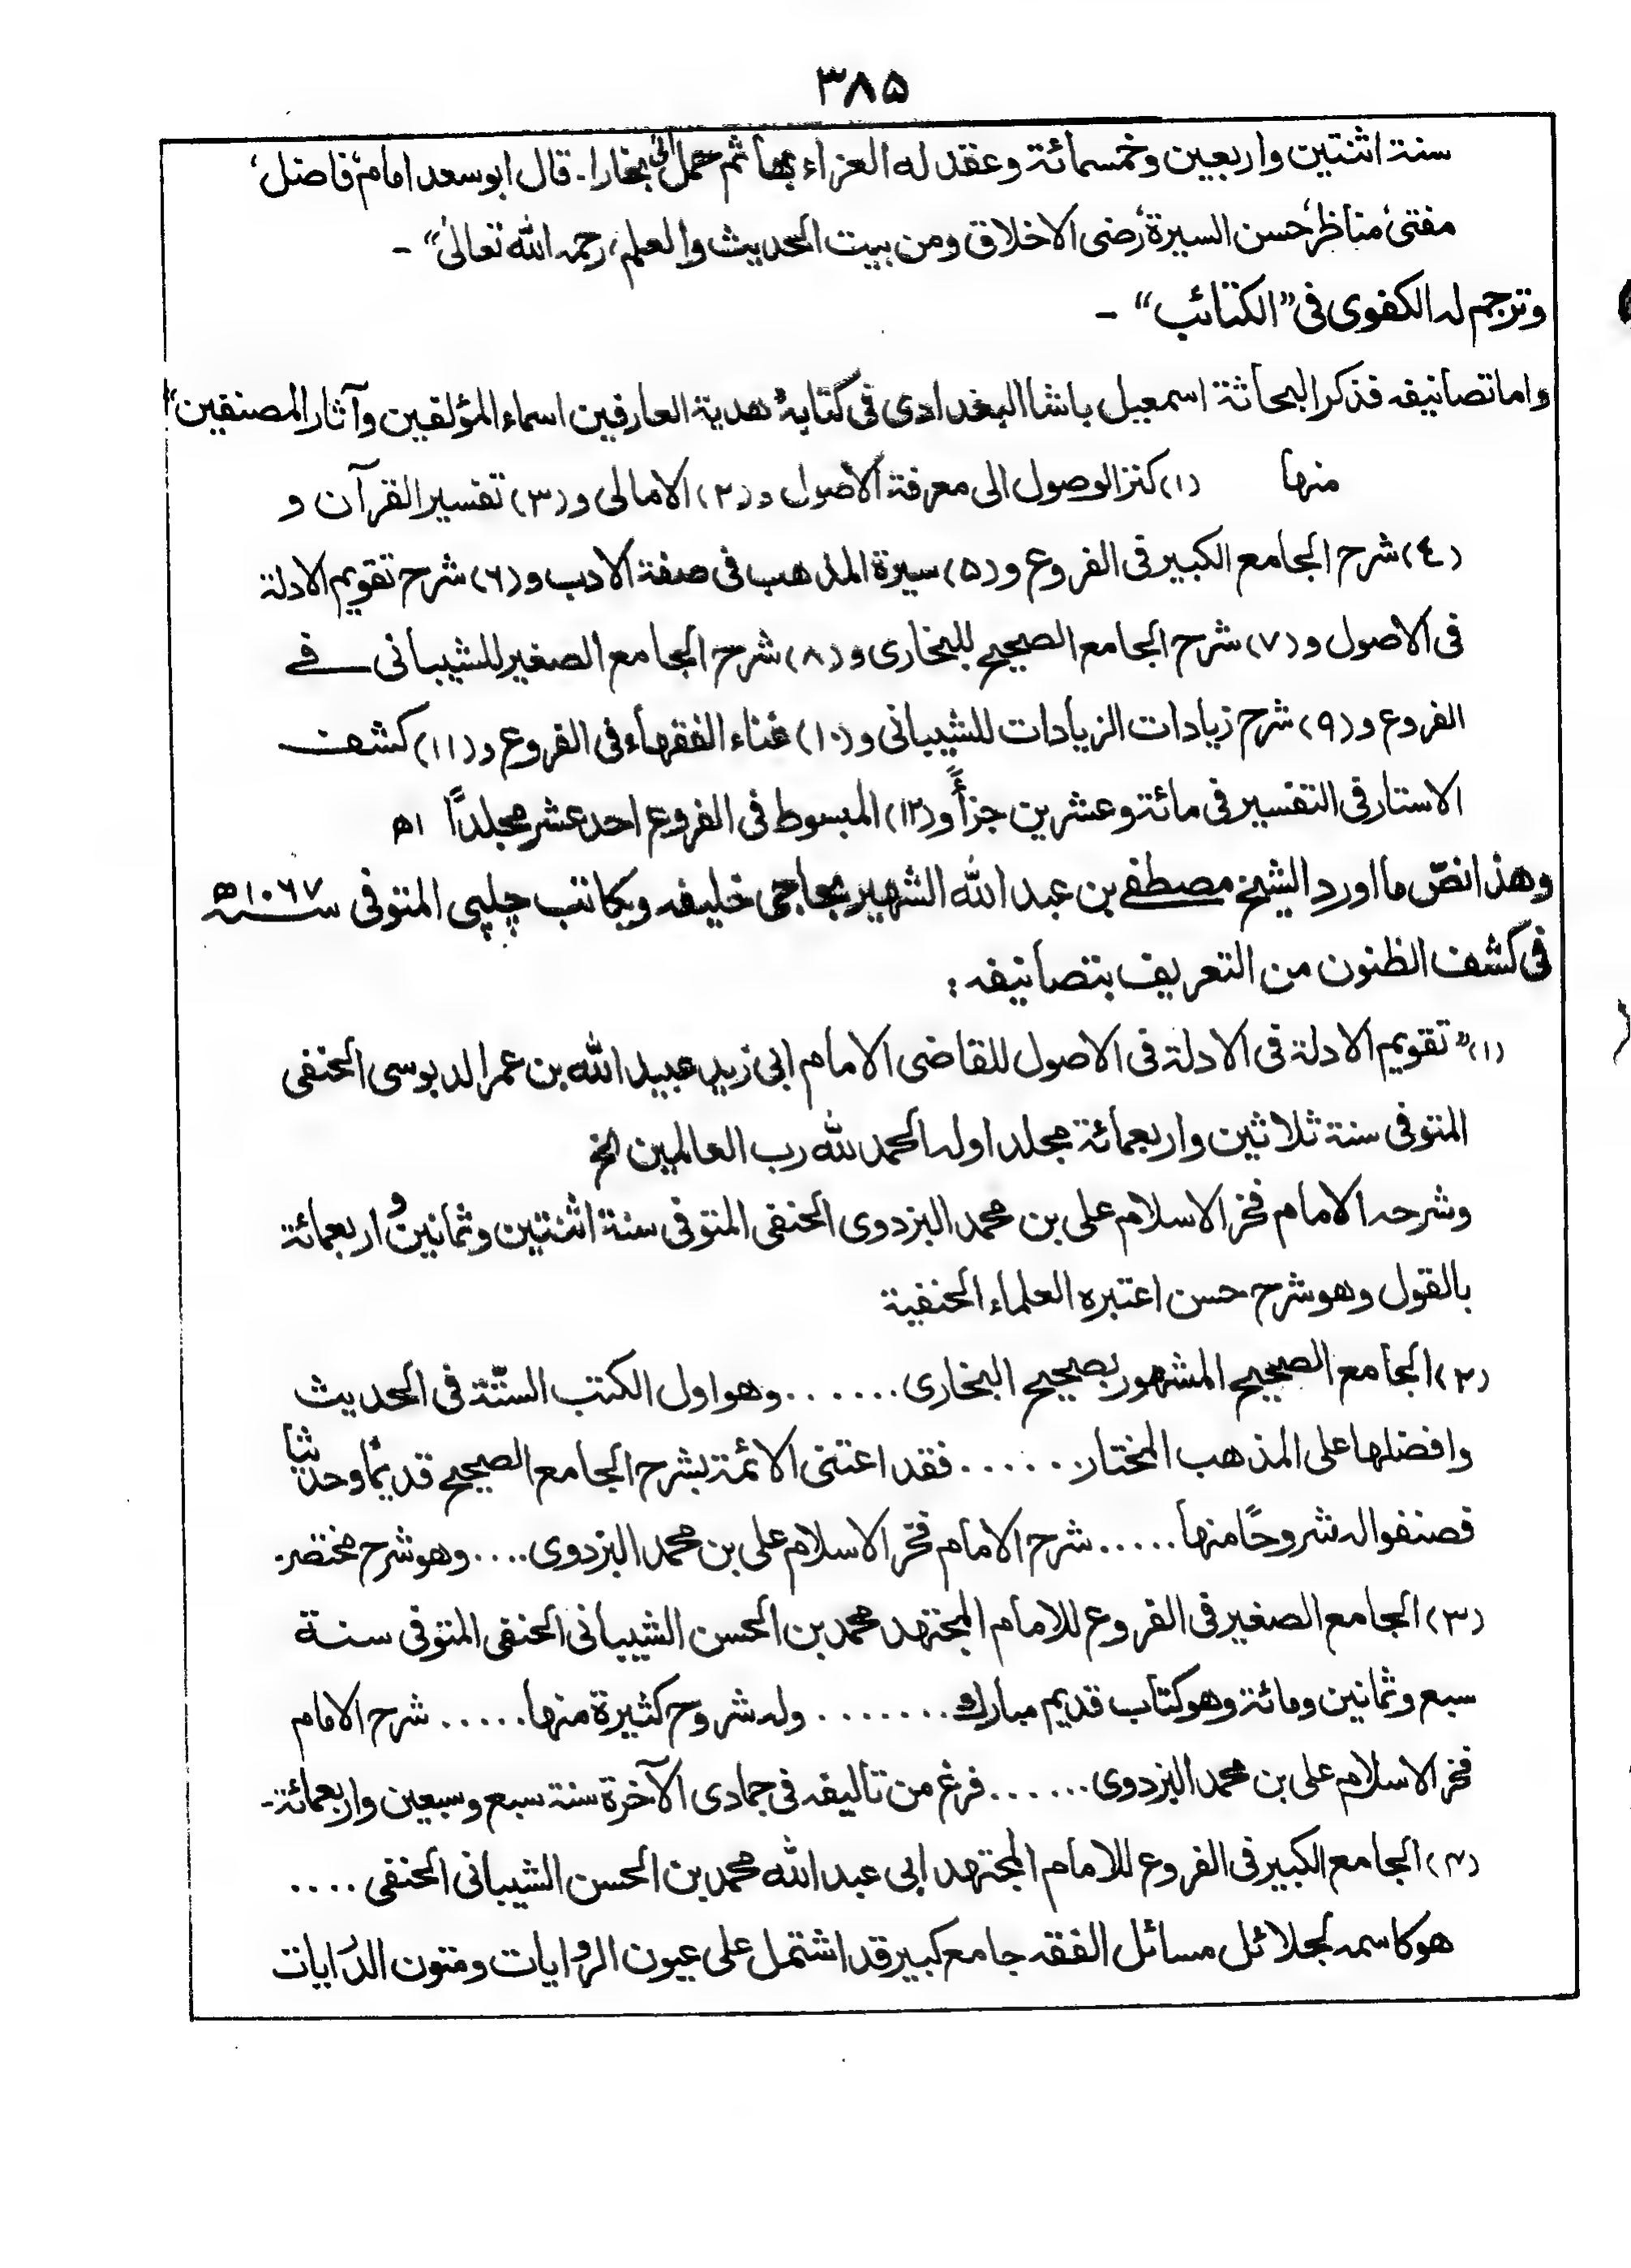 ٣٨٥
سنة اثنتين واربعين وخمسمائة وعقد له العزاء بها ثم حمل الى بخارا. قال ابو سعد امام، فاضل،
مفتى، مناظر، حسن السيرة، رضى الاخلاق ومن بيت الحديث والعلم، رحمه الله تعالىٰ“ -
وترجم له الكفوى فى ”الكتائب“ -
واما تصانيفه فذكر البحاثة اسمعيل باشا البغدادى فى كتابه ”هدية العارفين اسماء المؤلفين وآثار المصنفين“
منها (١) كنز الوصول الى معرفة الاصول و (٢) الامالى و (٣) تفسير القرآن و
(٤) شرح الجامع الكبير فى الفروع و (٥) سيرة المذهب فى صفة الادب و (٦) شرح تقويم الادلة
فى الاصول و (٧) شرح الجامع الصحيح للبخارى و (٨) شرح الجامع الصغير للشيبانى فے
الفروع و (٩) شرح زيادات الزيادات للشيبانى و (١٠) غناء الفقهاء فى الفروع و (١١) كشف
الاستار فى التفسير فى مائة وعشرين جزأً و (١٢) المبسوط فى الفروع احد عشر مجلدًا اھ
وهذا نصّ ما اورد الشيخ مصطفے بن عبد الله الشهير بحاجى خليفه وبكاتب چلپى المتوفى سنة ١٠٦٧ھ
فى كشف الظنون من التعريف بتصانيفه :
(١) ”تقويم الادلة فى الادلة فى الاصول للقاضى الامام ابى زيد عبيد الله بن عمر الدبوسى الحنفى
المتوفى سنة ثلاثين واربعمائة مجلد اوله الحمد لله رب العالمين الخ
وشرحه الامام فخر الاسلام على بن محمد البزدوى الحنفى المتوفى سنة اثنتين وثمانين واربعمائة
بالقول وهو شرح حسن اعتبره العلماء الحنفية
(٢) الجامع الصحيح المشهور بصحيح البخارى ...... وهو اول الكتب الستّة فى الحديث
وافضلها على المذهب المختار ...... فقد اعتنى الائمة بشرح الجامع الصحيح قديمًا وحديثًا
فصنفوا له شروحًا منها ..... شرح الامام فخر الاسلام على بن محمد البزدوى .... وهو شرح مختصر.
(٣) الجامع الصغير فى الفروع للامام المجتهد محمد بن الحسن الشيبانى الحنفى المتوفى سنة
سبع وثمانين ومائة وهو كتاب قديم مبارك ....... وله شروح كثيرة منها ..... شرح الامام
فخر الاسلام على بن محمد البزدوى ...... فرغ من تاليفه فى جمادى الآخرة سنة سبع وسبعين واربعمائة-
(۴) الجامع الكبير فى الفروع للامام المجتهد ابى عبد الله محمد بن الحسن الشيبانى الحنفى ....
هو كاسمه لجلائل مسائل الفقه جامع كبير قد اشتمل على عيون الروايات ومتون الدرايات